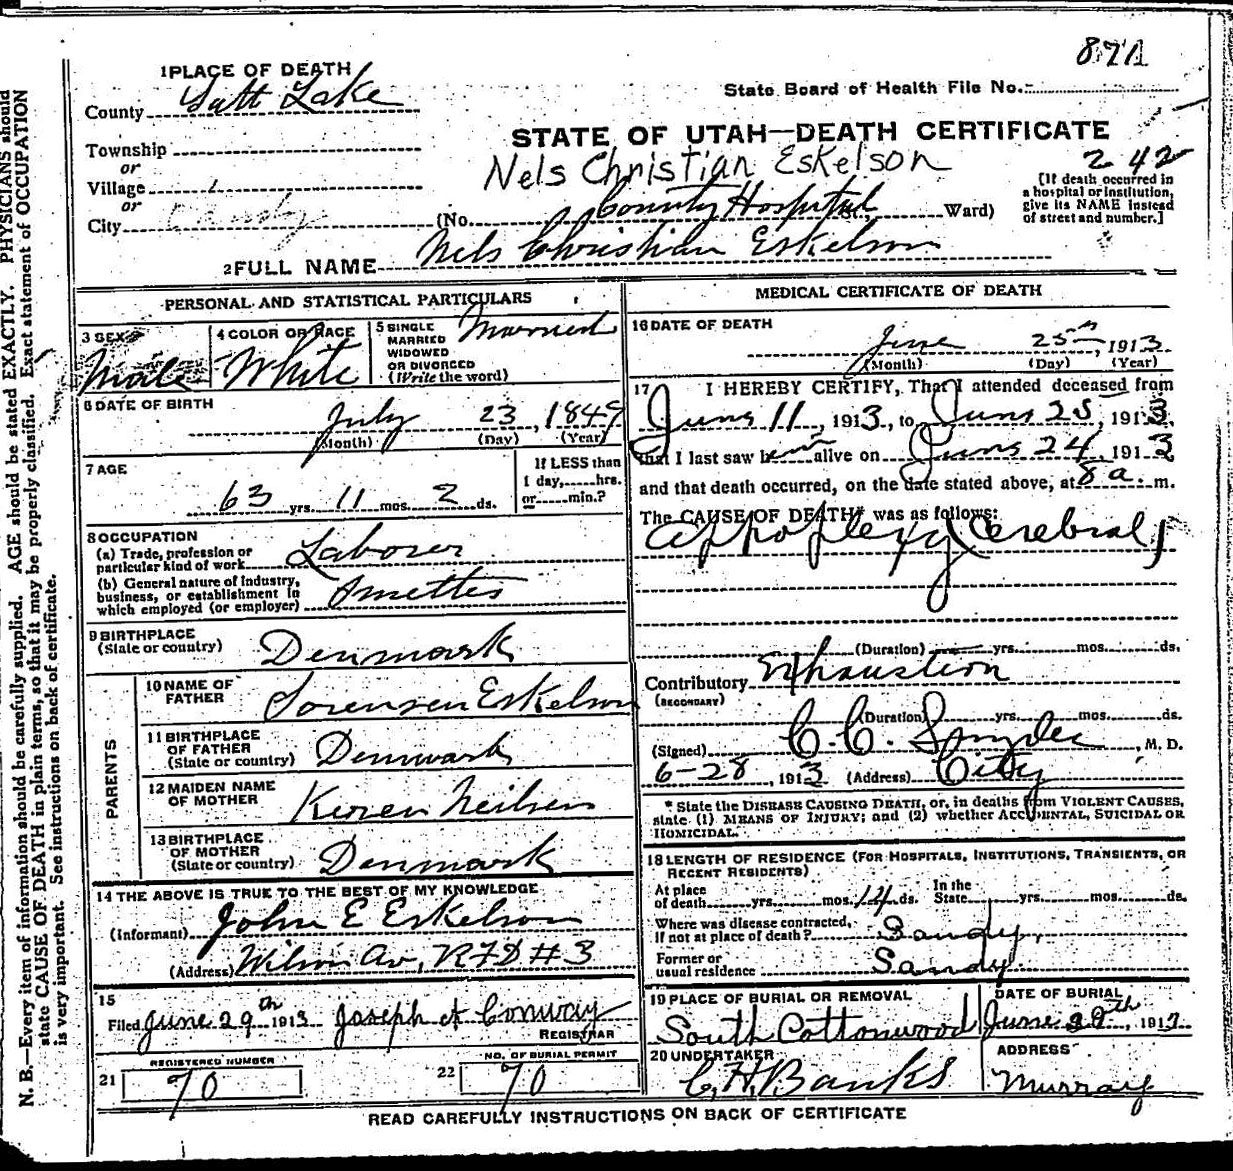 871
1 PLACE OF DEATH
County Salt Lake
State Board of Health File No.
Township
or
Village
or
City Sandy
STATE OF UTAH—DEATH CERTIFICATE
Nels Christian Eskelson
242
(No. County Hospital St., Ward)
[If death occurred in
a hospital or institution,
give its NAME instead
of street and number.]
2 FULL NAME Nels Christian Eskelson
PERSONAL AND STATISTICAL PARTICULARS
3 SEX Male
4 COLOR OR RACE White
5 SINGLE
MARRIED
WIDOWED
OR DIVORCED
(Write the word) Married
6 DATE OF BIRTH
July 23, 1849
(Month) (Day) (Year)
7 AGE
63 yrs. 11 mos. 2 ds.
If LESS than
1 day, hrs.
or min.?
8 OCCUPATION
(a) Trade, profession or
particular kind of work Laborer
(b) General nature of industry,
business, or establishment in
which employed (or employer)
9 BIRTHPLACE
(State or country) Denmark
PARENTS
10 NAME OF
FATHER Sorensen Eskelson
11 BIRTHPLACE
OF FATHER
(State or country) Denmark
12 MAIDEN NAME
OF MOTHER Keren Neilsen
13 BIRTHPLACE
OF MOTHER
(State or country) Denmark
14 THE ABOVE IS TRUE TO THE BEST OF MY KNOWLEDGE
(Informant) John E Eskelson
(Address) Av, RFD #3
15
Filed June 29th 1913 Joseph Conway
REGISTRAR
REGISTERED NUMBER
21 70
NO. OF BURIAL PERMIT
22 70
MEDICAL CERTIFICATE OF DEATH
16 DATE OF DEATH
June 25th, 1913
(Month) (Day) (Year)
17 I HEREBY CERTIFY, That I attended deceased from
June 11, 1913, to June 25, 1913,
that I last saw him alive on June 24, 1913
and that death occurred, on the date stated above, at 8 a. m.
The CAUSE OF DEATH* was as follows:
appoplexy (Cerebral)
(Duration) yrs. mos. ds.
Contributory Exhaustion
(SECONDARY)
(Duration) yrs. mos. ds.
(Signed) C. C. Snyder, M. D.
6-28, 1913 (Address) City
* State the DISEASE CAUSING DEATH, or, in deaths from VIOLENT CAUSES,
state (1) MEANS OF INJURY; and (2) whether ACCIDENTAL, SUICIDAL OR
HOMICIDAL.
18 LENGTH OF RESIDENCE (FOR HOSPITALS, INSTITUTIONS, TRANSIENTS, OR
RECENT RESIDENTS)
At place
of death yrs. mos. 14 ds.
In the
State yrs. mos. ds.
Where was disease contracted,
if not at place of death? Sandy,
Former or
usual residence Sandy
19 PLACE OF BURIAL OR REMOVAL
South Cottonwood
DATE OF BURIAL
June 29th, 1913
20 UNDERTAKER
C. H. Banks
ADDRESS
Murray
READ CAREFULLY INSTRUCTIONS ON BACK OF CERTIFICATE
N. B.—Every item of information should be carefully supplied. AGE should be stated EXACTLY. PHYSICIANS should
state CAUSE OF DEATH in plain terms, so that it may be properly classified. Exact statement of OCCUPATION
is very important. See instructions on back of certificate.